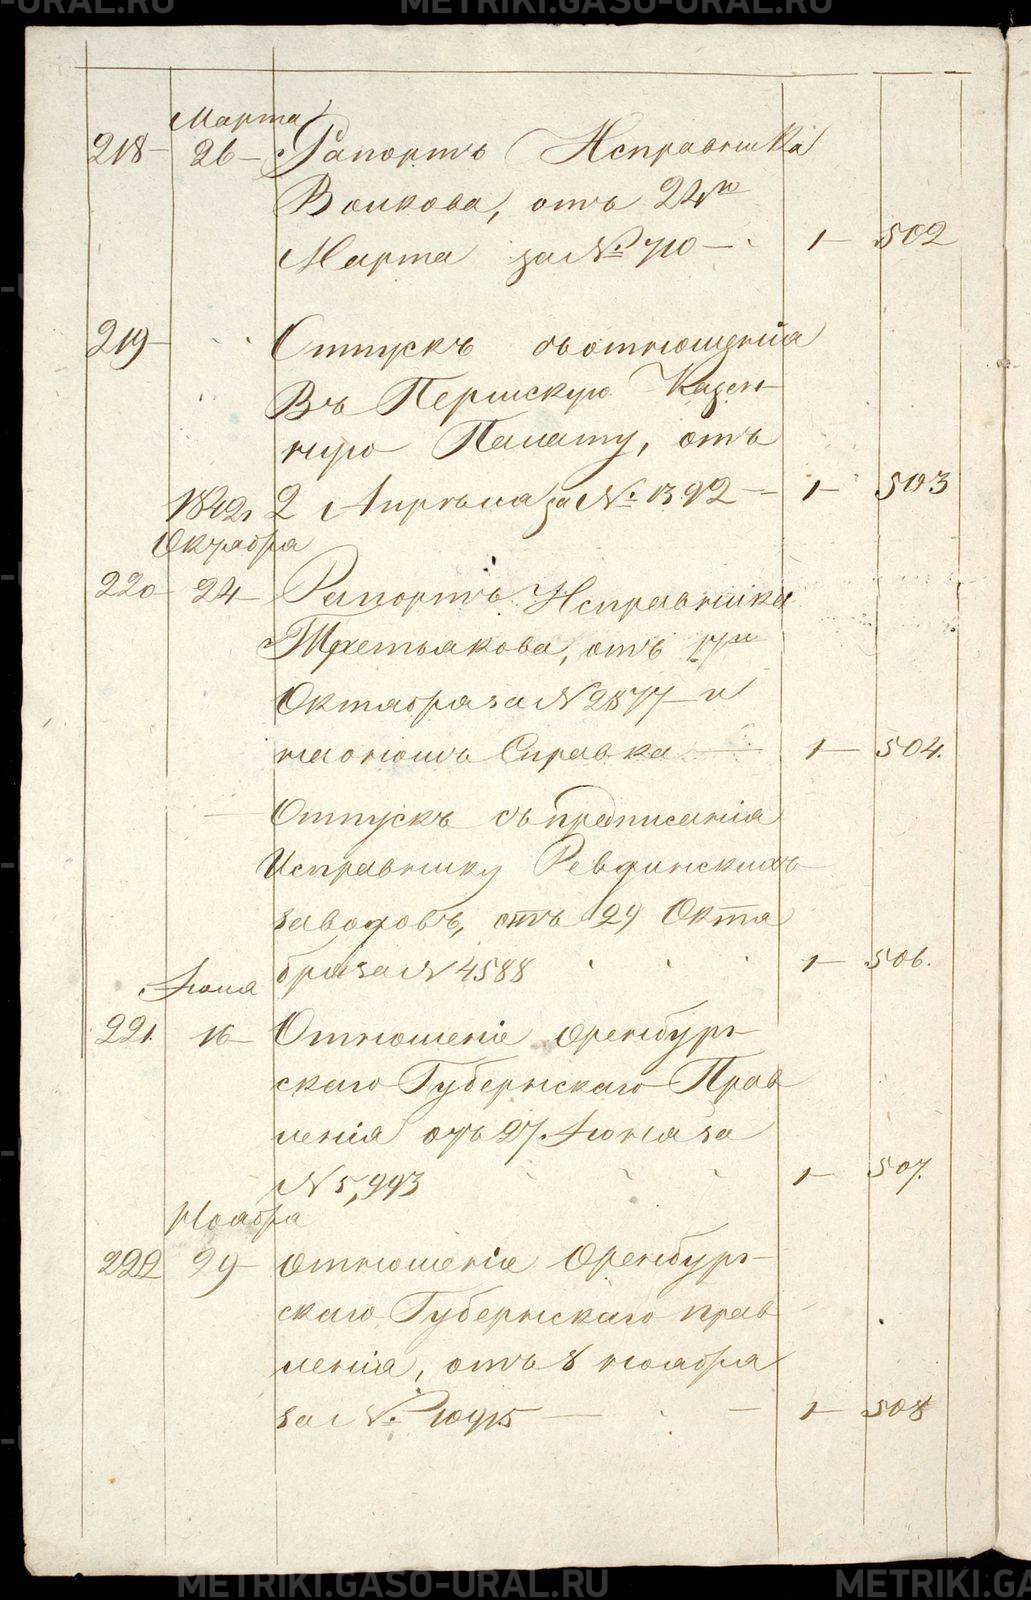 Марта
218 26 Рапортъ Исправника
Волкова, отъ 24го
Марта за № 710 1 502
219 Отпускъ съ отношенія
Въ Пермскую Казен-
ную Палату, отъ
1842, 2 Апрѣля за № 1392 1 503
Октября
220 24 Рапортъ Исправника
Третьякова, отъ 17го
Октября за № 2877 и
на ономъ Справка 1 504.
Отпускъ съ предписанія
Исправнику Ревдинскихъ
заводовъ, отъ 29 Октя
бря за № 4588 1 506.
Іюля
221. 16 Отношеніе Оренбург-
скаго Губернскаго Прав
ленія отъ 27 Іюня за
№ 5,993 1 507.
Ноября
222 29 Отношеніе Оренбург-
скаго Губернскаго прав
ленія, отъ 8 ноября
за №. 10915 1 508
METRIKI.GASO-URAL.RU
METRIKI.GA